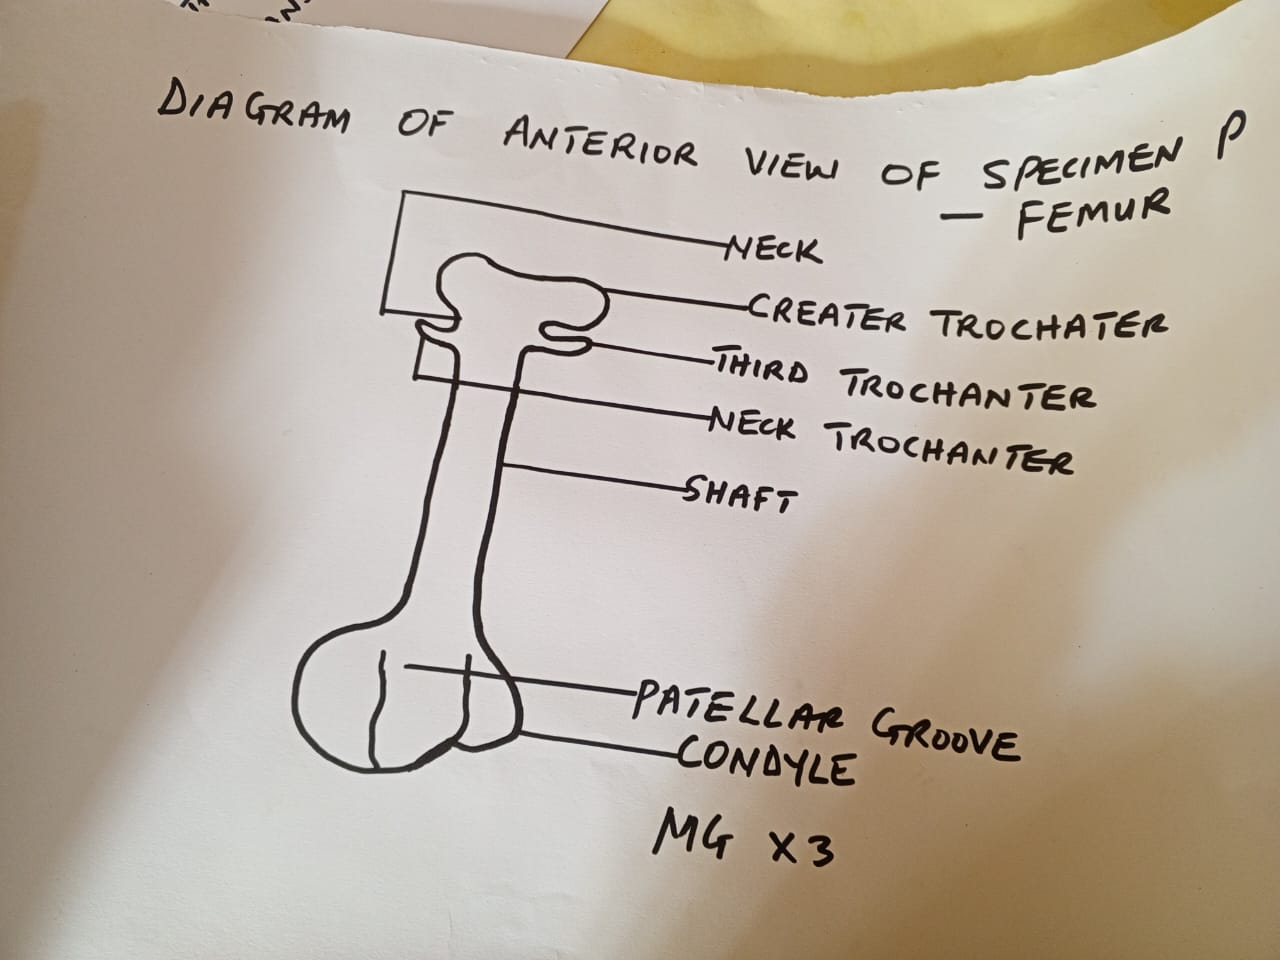 DIAGRAM OF ANTERIOR VIEW OF SPECIMEN P
— FEMUR
NECK
CREATER TROCHATER
THIRD TROCHANTER
NECK TROCHANTER
SHAFT
PATELLAR GROOVE
CONDYLE
MG X3